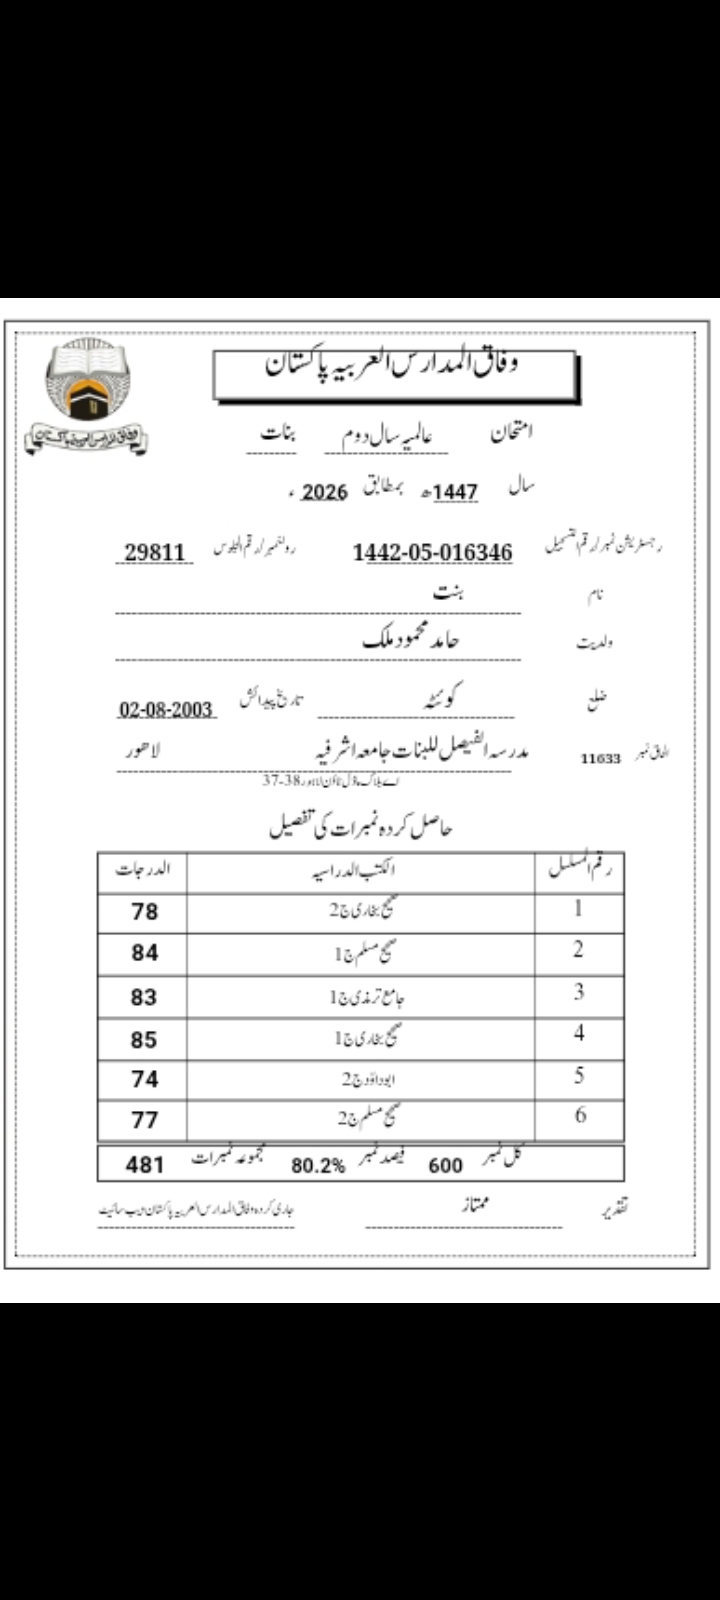 وفاق المدارس العربیہ پاکستان
امتحان عالمیہ سال دوم بنات
سال 1447ھ بمطابق 2026ء
رجسٹریشن نمبر/رقم التسجیل 1442-05-016346 رولنمبر/رقم الجلوس 29811
نام بنت
ولدیت حامد محمود ملک
ضلع کوئٹہ تاریخ پیدائش 02-08-2003
الحاق نمبر 11633 مدرسہ الفیصل للبنات جامعہ اشرفیہ لاھور
37-38 اے بلاک ماڈل ٹاؤن لاہور
حاصل کردہ نمبرات کی تفصیل
رقم المسلسل الکتب الدراسیہ الدرجات
1 صحیح بخاری ج2 78
2 صحیح مسلم ج1 84
3 جامع ترمذی ج1 83
4 صحیح بخاری ج1 85
5 ابوداؤد ج2 74
6 صحیح مسلم ج2 77
کل نمبر 600 فیصد نمبر 80.2% مجموعہ نمبرات 481
تقدیر ممتاز جاری کردہ وفاق المدارس العربیہ پاکستان ویب سائیٹ